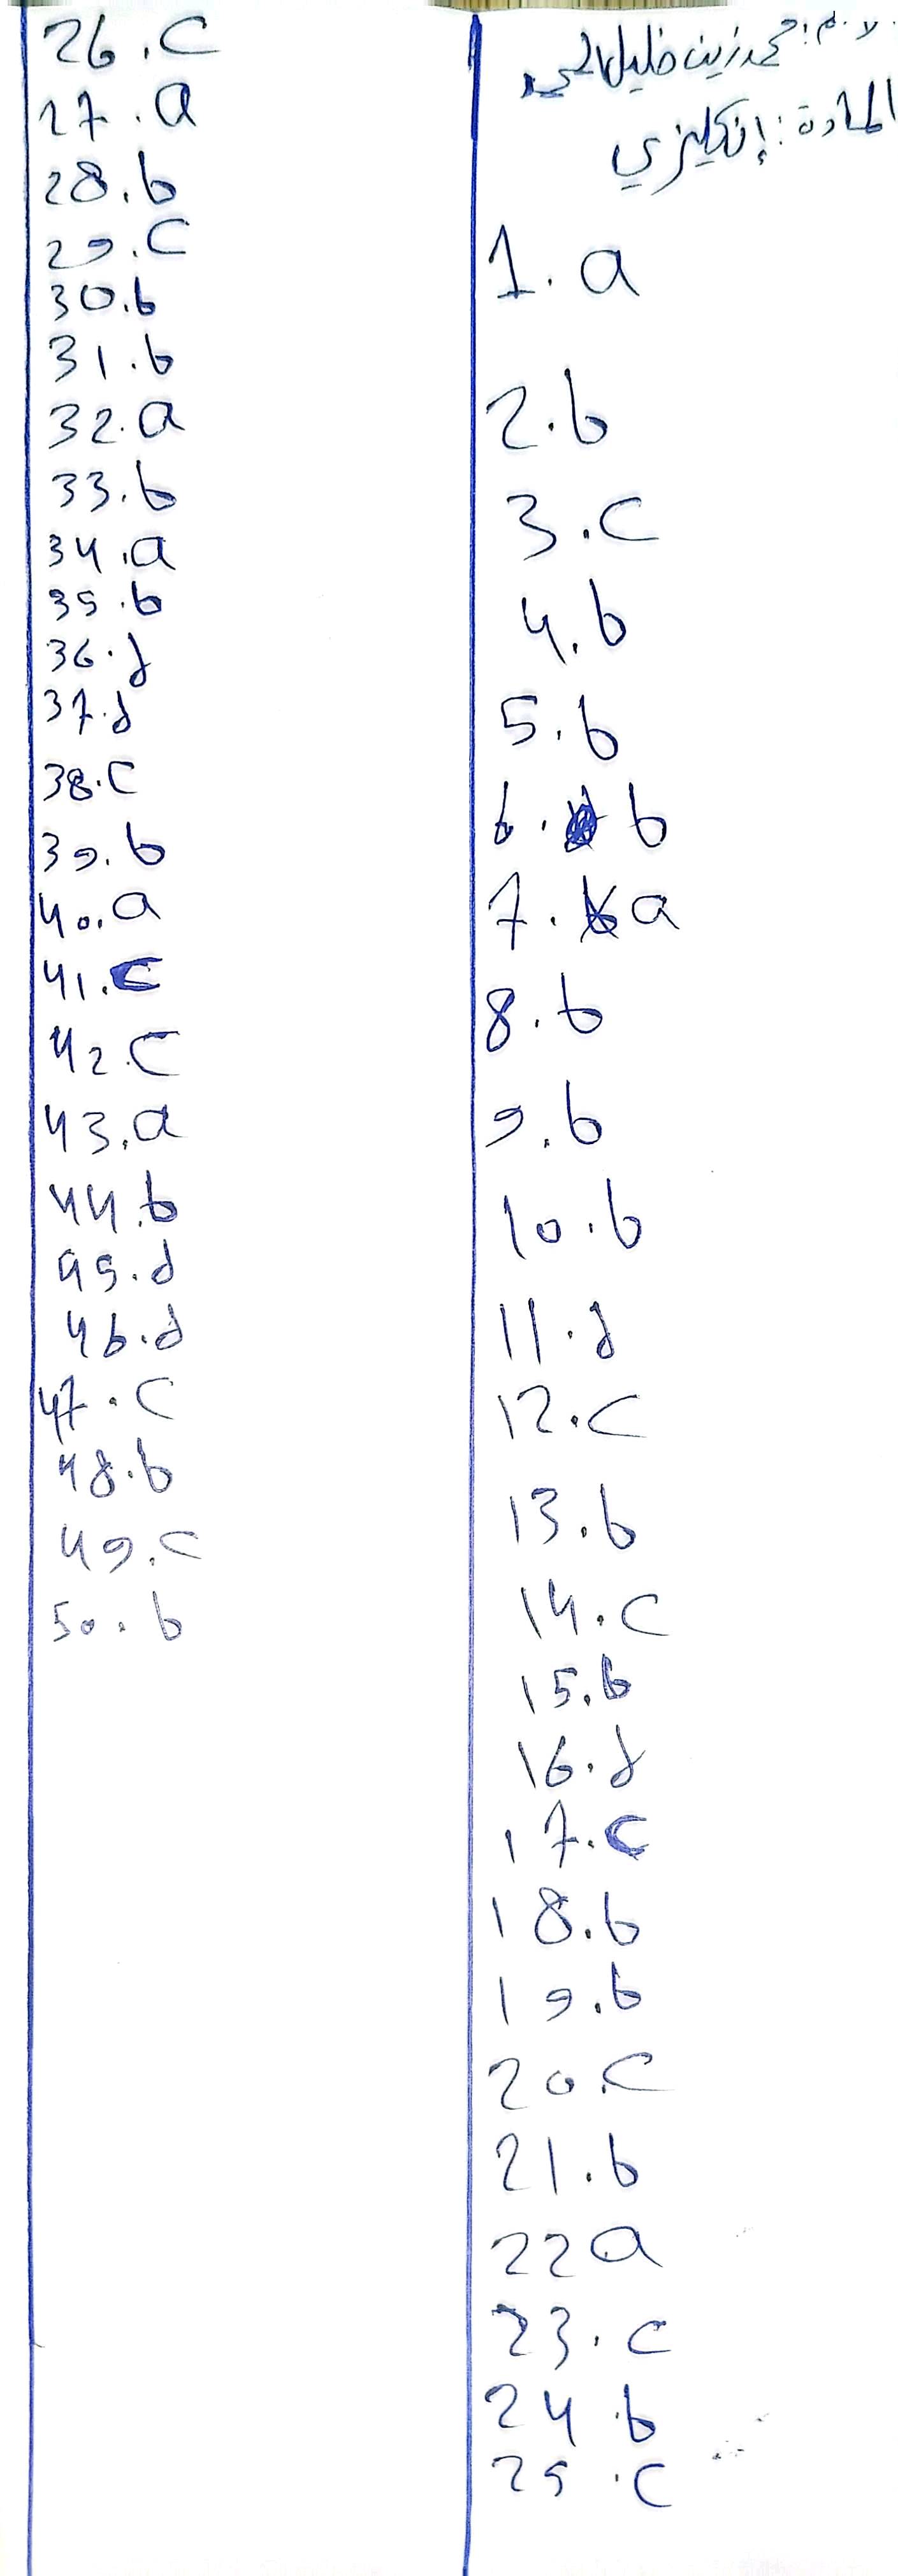 الاسم: محمد زين خليل المحمد
المادة: إنكليزي
1. a
2. b
3. c
4. b
5. b
6. b
7. a
8. b
9. b
10. b
11. d
12. c
13. b
14. c
15. b
16. d
17. c
18. b
19. b
20. c
21. b
22 a
23. c
24. b
25. c
26. c
27. a
28. b
29. c
30. b
31. b
32. a
33. b
34. a
35. b
36. d
37. d
38. c
39. b
40. a
41. c
42. c
43. a
44. b
45. d
46. d
47. c
48. b
49. c
50. b